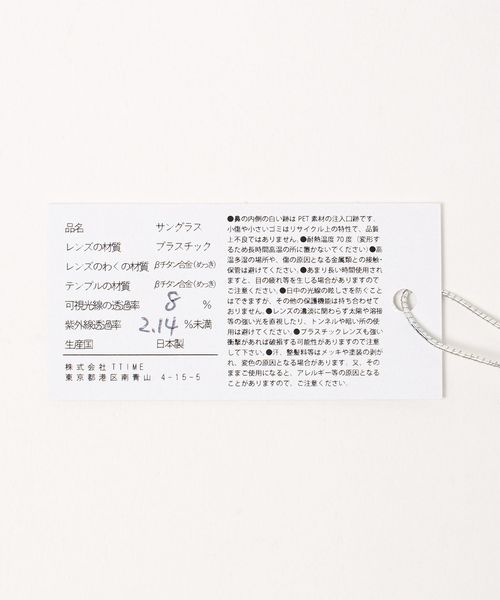 品名 サングラス
レンズの材質 プラスチック
レンズのわくの材質 βチタン合金(めっき)
テンプルの材質 βチタン合金(めっき)
可視光線の透過率 8 %
紫外線透過率 2.14 %未満
生産国 日本製
株式会社 TTIME
東京都港区南青山 4-15-5
●鼻の内側の白い跡は PET 素材の注入口跡です、
小傷や小さいゴミはリサイクル上の特性で、品質
上不良ではありません。●耐熱温度 70 度（変形す
るため長時間高温の所に置かないでください）●高
温多湿の場所や、傷の原因となる金属類との接触・
保管は避けてください。●あまり長い時間使用され
ますと、目の疲れ等を生じる場合がありますので
ご注意ください。●日中の光線の眩しさを防ぐこと
はできますが、その他の保護機能は持ち合わせて
おりません。●レンズの濃淡に関わらず太陽や溶接
等の強い光を直視したり、トンネルや暗い所の使
用は避けてください。●プラスチックレンズも強い
衝撃があれば破損する可能性がありますので注意
して下さい。●汗、整髪料等はメッキや塗装の剥が
れ、変色の原因となる場合があります、又、その
ままご使用になると、アレルギー等の原因となる
ことがありますので、ご注意ください。